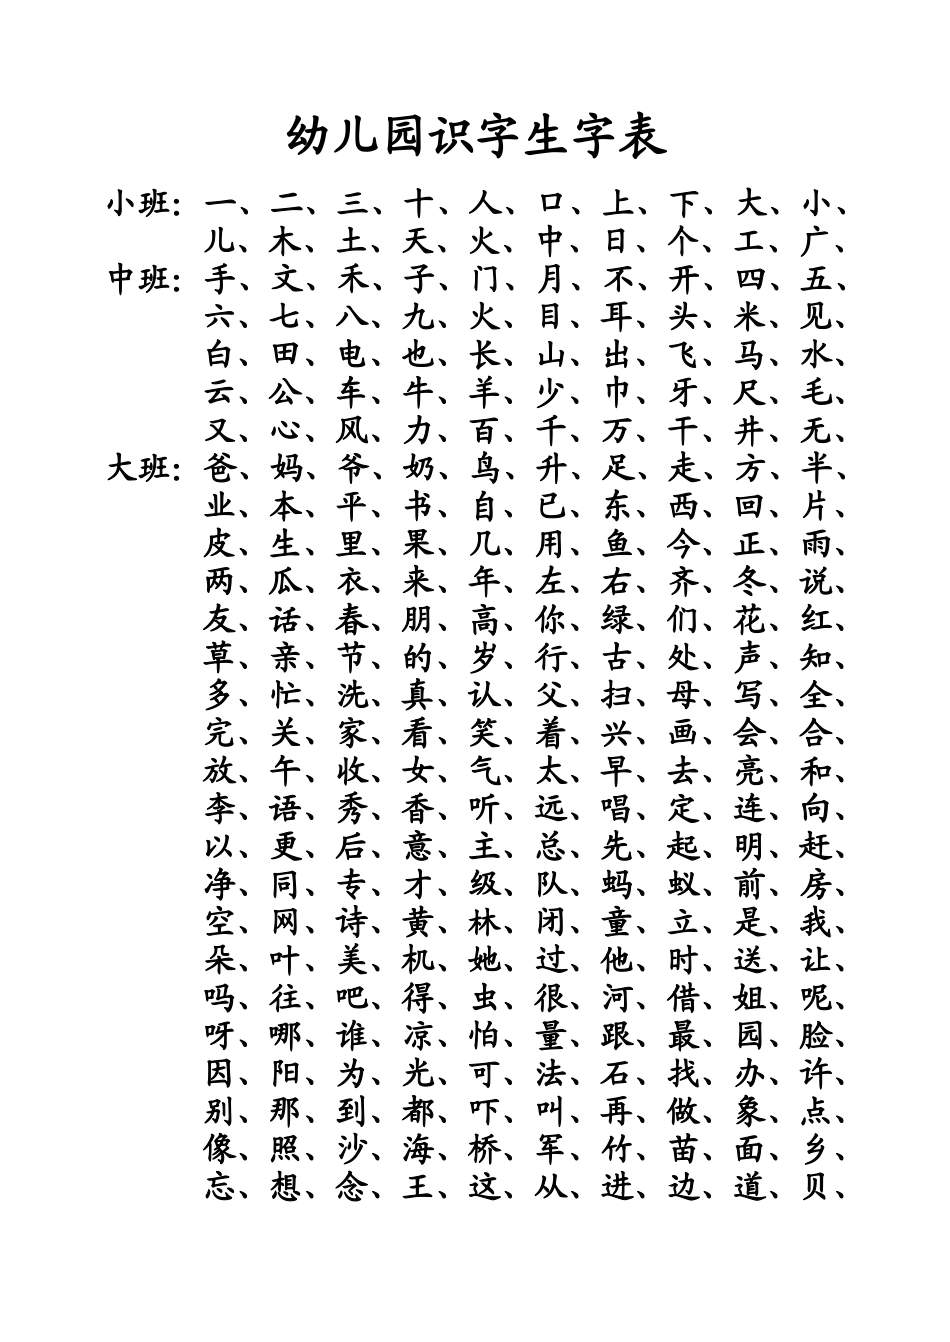 幼儿园识字生字表
小班：一、二、三、十、人、口、上、下、大、小、
儿、木、土、天、火、中、日、个、工、广、
中班：手、文、禾、子、门、月、不、开、四、五、
六、七、八、九、火、目、耳、头、米、见、
白、田、电、也、长、山、出、飞、马、水、
云、公、车、牛、羊、少、巾、牙、尺、毛、
又、心、风、力、百、千、万、干、井、无、
大班：爸、妈、爷、奶、鸟、升、足、走、方、半、
业、本、平、书、自、已、东、西、回、片、
皮、生、里、果、几、用、鱼、今、正、雨、
两、瓜、衣、来、年、左、右、齐、冬、说、
友、话、春、朋、高、你、绿、们、花、红、
草、亲、节、的、岁、行、古、处、声、知、
多、忙、洗、真、认、父、扫、母、写、全、
完、关、家、看、笑、着、兴、画、会、合、
放、午、收、女、气、太、早、去、亮、和、
李、语、秀、香、听、远、唱、定、连、向、
以、更、后、意、主、总、先、起、明、赶、
净、同、专、才、级、队、蚂、蚁、前、房、
空、网、诗、黄、林、闭、童、立、是、我、
朵、叶、美、机、她、过、他、时、送、让、
吗、往、吧、得、虫、很、河、借、姐、呢、
呀、哪、谁、凉、怕、量、跟、最、园、脸、
因、阳、为、光、可、法、石、找、办、许、
别、那、到、都、吓、叫、再、做、象、点、
像、照、沙、海、桥、军、竹、苗、面、乡、
忘、想、念、王、这、从、进、边、道、贝、